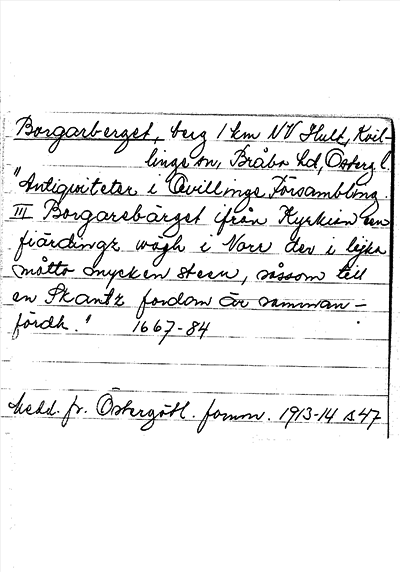 Borgarberget, berg 1 km NV Hult, Kvil-
linge sn, Bråbo hd, Östergl.
"Antiqviteter i Qvillinge Försambling
III Borgarebärget ifrån Kyrkian een
fiärdingz wägh i Norr der i lijka
måtto mycken steen, såssom till
en Skantz fordom är samman-
fördh." 1667-84
Medd. fr. Östergötl. fornm. 1913-14 s 47